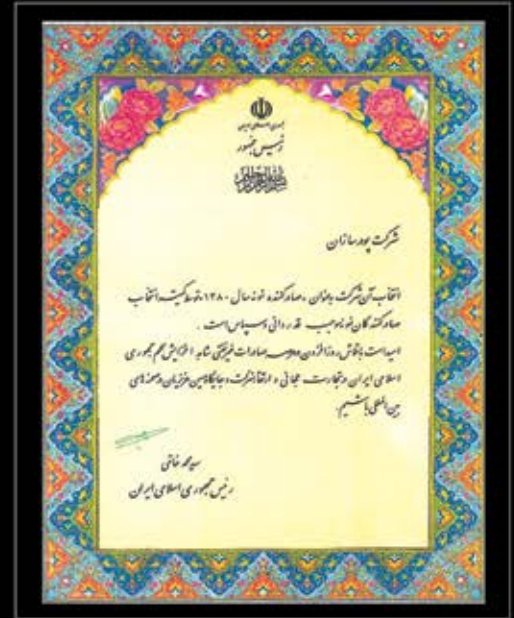 جمهوری اسلامی ایران
رئیس جمهور
بسم الله الرحمن الرحیم
شرکت پودرسازان
انتخاب آن شرکت بعنوان «صادرکننده نمونه سال ۱۳۸۰» توسط کمیته انتخاب
صادرکنندگان نمونه موجب قدردانی و سپاس است.
امید است با تلاش روزافزون در توسعه صادرات غیرنفتی شاهد افزایش سهم جمهوری
اسلامی ایران در تجارت جهانی و ارتقاء منزلت و جایگاه میهن عزیزمان در صحنه های
بین المللی باشیم.
سید محمد خاتمی
رئیس جمهوری اسلامی ایران